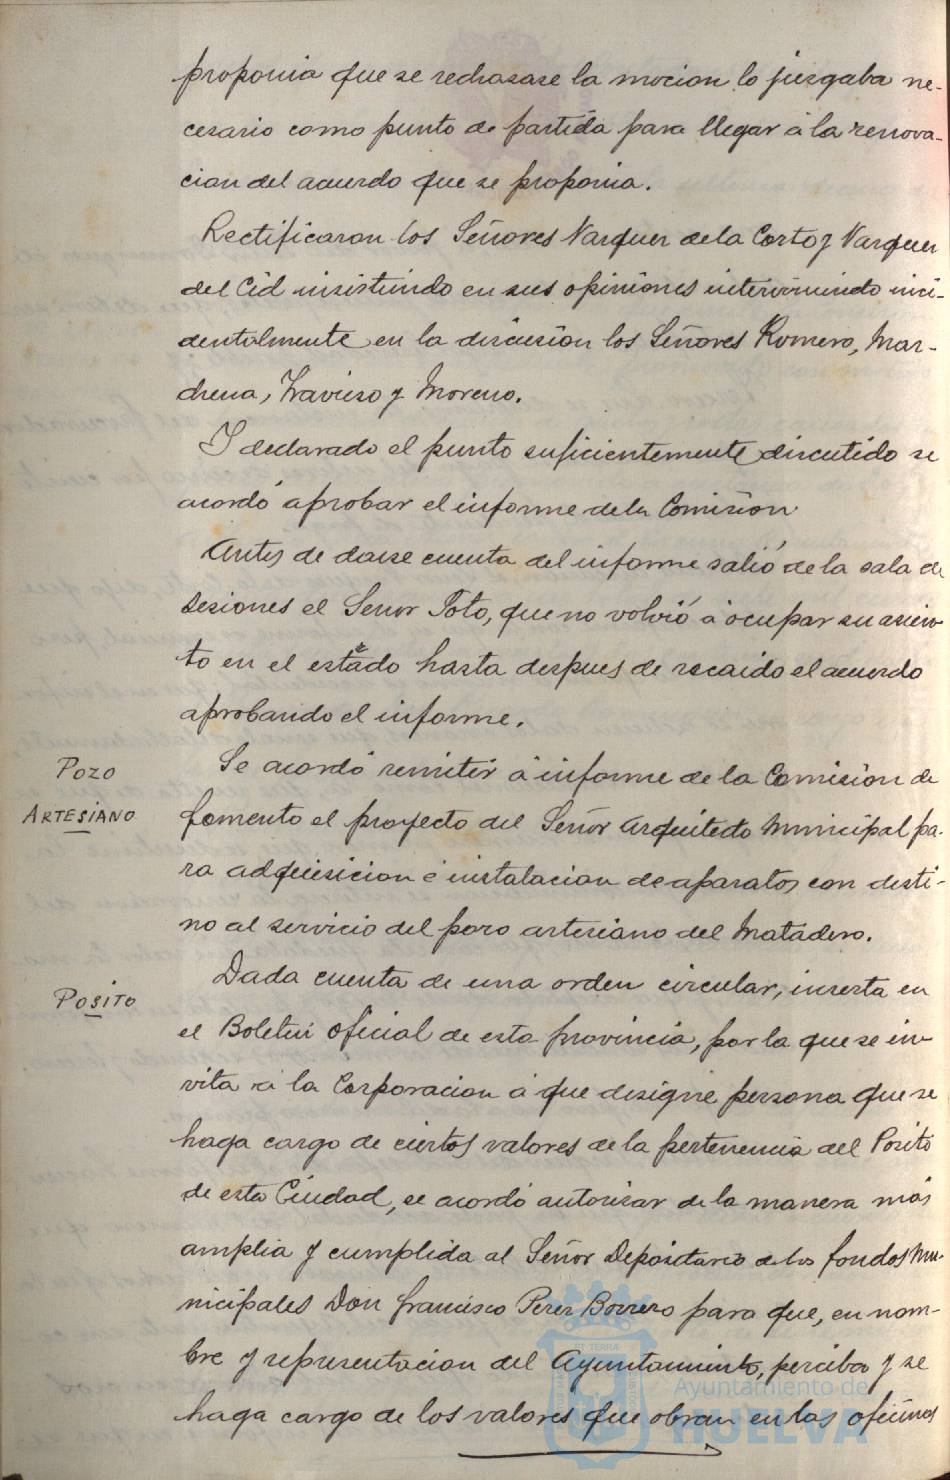 proponia que se rechasase la mocion lo juzgaba ne-
cesario como punto de partida para llegar á la renova-
cion del acuerdo que se proponia.
Rectificaron los Señores Vazquez de la Corte y Vazquez
del Cid insistiendo en sus opiniones interviniendo inci-
dentalmente en la discusion los Señores Romero, Mar-
chena, Travieso y Moreno.
I declarado el punto suficientemente discutido se
acordó aprobar el informe de la Comision
Antes de darse cuenta del informe salió de la sala de
sesiones el Señor Toto, que no volvió á ocupar su asien-
to en el estrado hasta despues de recaido el acuerdo
aprobando el informe.
POZO
ARTESIANO
Se acordó remitir á informe de la Comision de
fomento el proyecto del Señor Arquitecto Municipal pa-
ra adquisicion é instalacion de aparatos con desti-
no al servicio del pozo artesiano del Matadero.
POSITO
Dada cuenta de una orden circular, inserta en
el Boletin Oficial de esta provincia, por la que se in-
vita á la Corporacion á que designe persona que se
haga cargo de ciertos valores de la pertenencia del Posito
de esta Ciudad, se acordó autorizar de la manera más
amplia y cumplida al Señor Depositario de los fondos Mu-
nicipales Don Francisco Perez Borrero para que, en nom-
bre y representacion del Ayuntamiento, perciba y se
haga cargo de los valores que obran en las oficinas
Ayuntamiento de
HUELVA